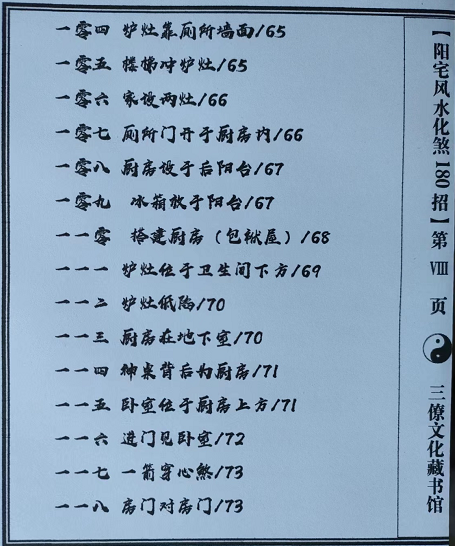 一零四 炉灶靠厕所墙面/65
一零五 楼梯冲炉灶/65
一零六 家设两灶/66
一零七 厕所门开于厨房内/66
一零八 厨房设于后阳台/67
一零九 冰箱放于阳台/67
一一零 搭建厨房（包袱屋）/68
一一一 炉灶位于卫生间下方/69
一一二 炉灶低陷/70
一一三 厨房在地下室/70
一一四 神桌背后为厨房/71
一一五 卧室位于厨房上方/71
一一六 进门见卧室/72
一一七 一箭穿心煞/73
一一八 房门对房门/73
【阳宅风水化煞180招】第 VIII 页 三僚文化藏书馆